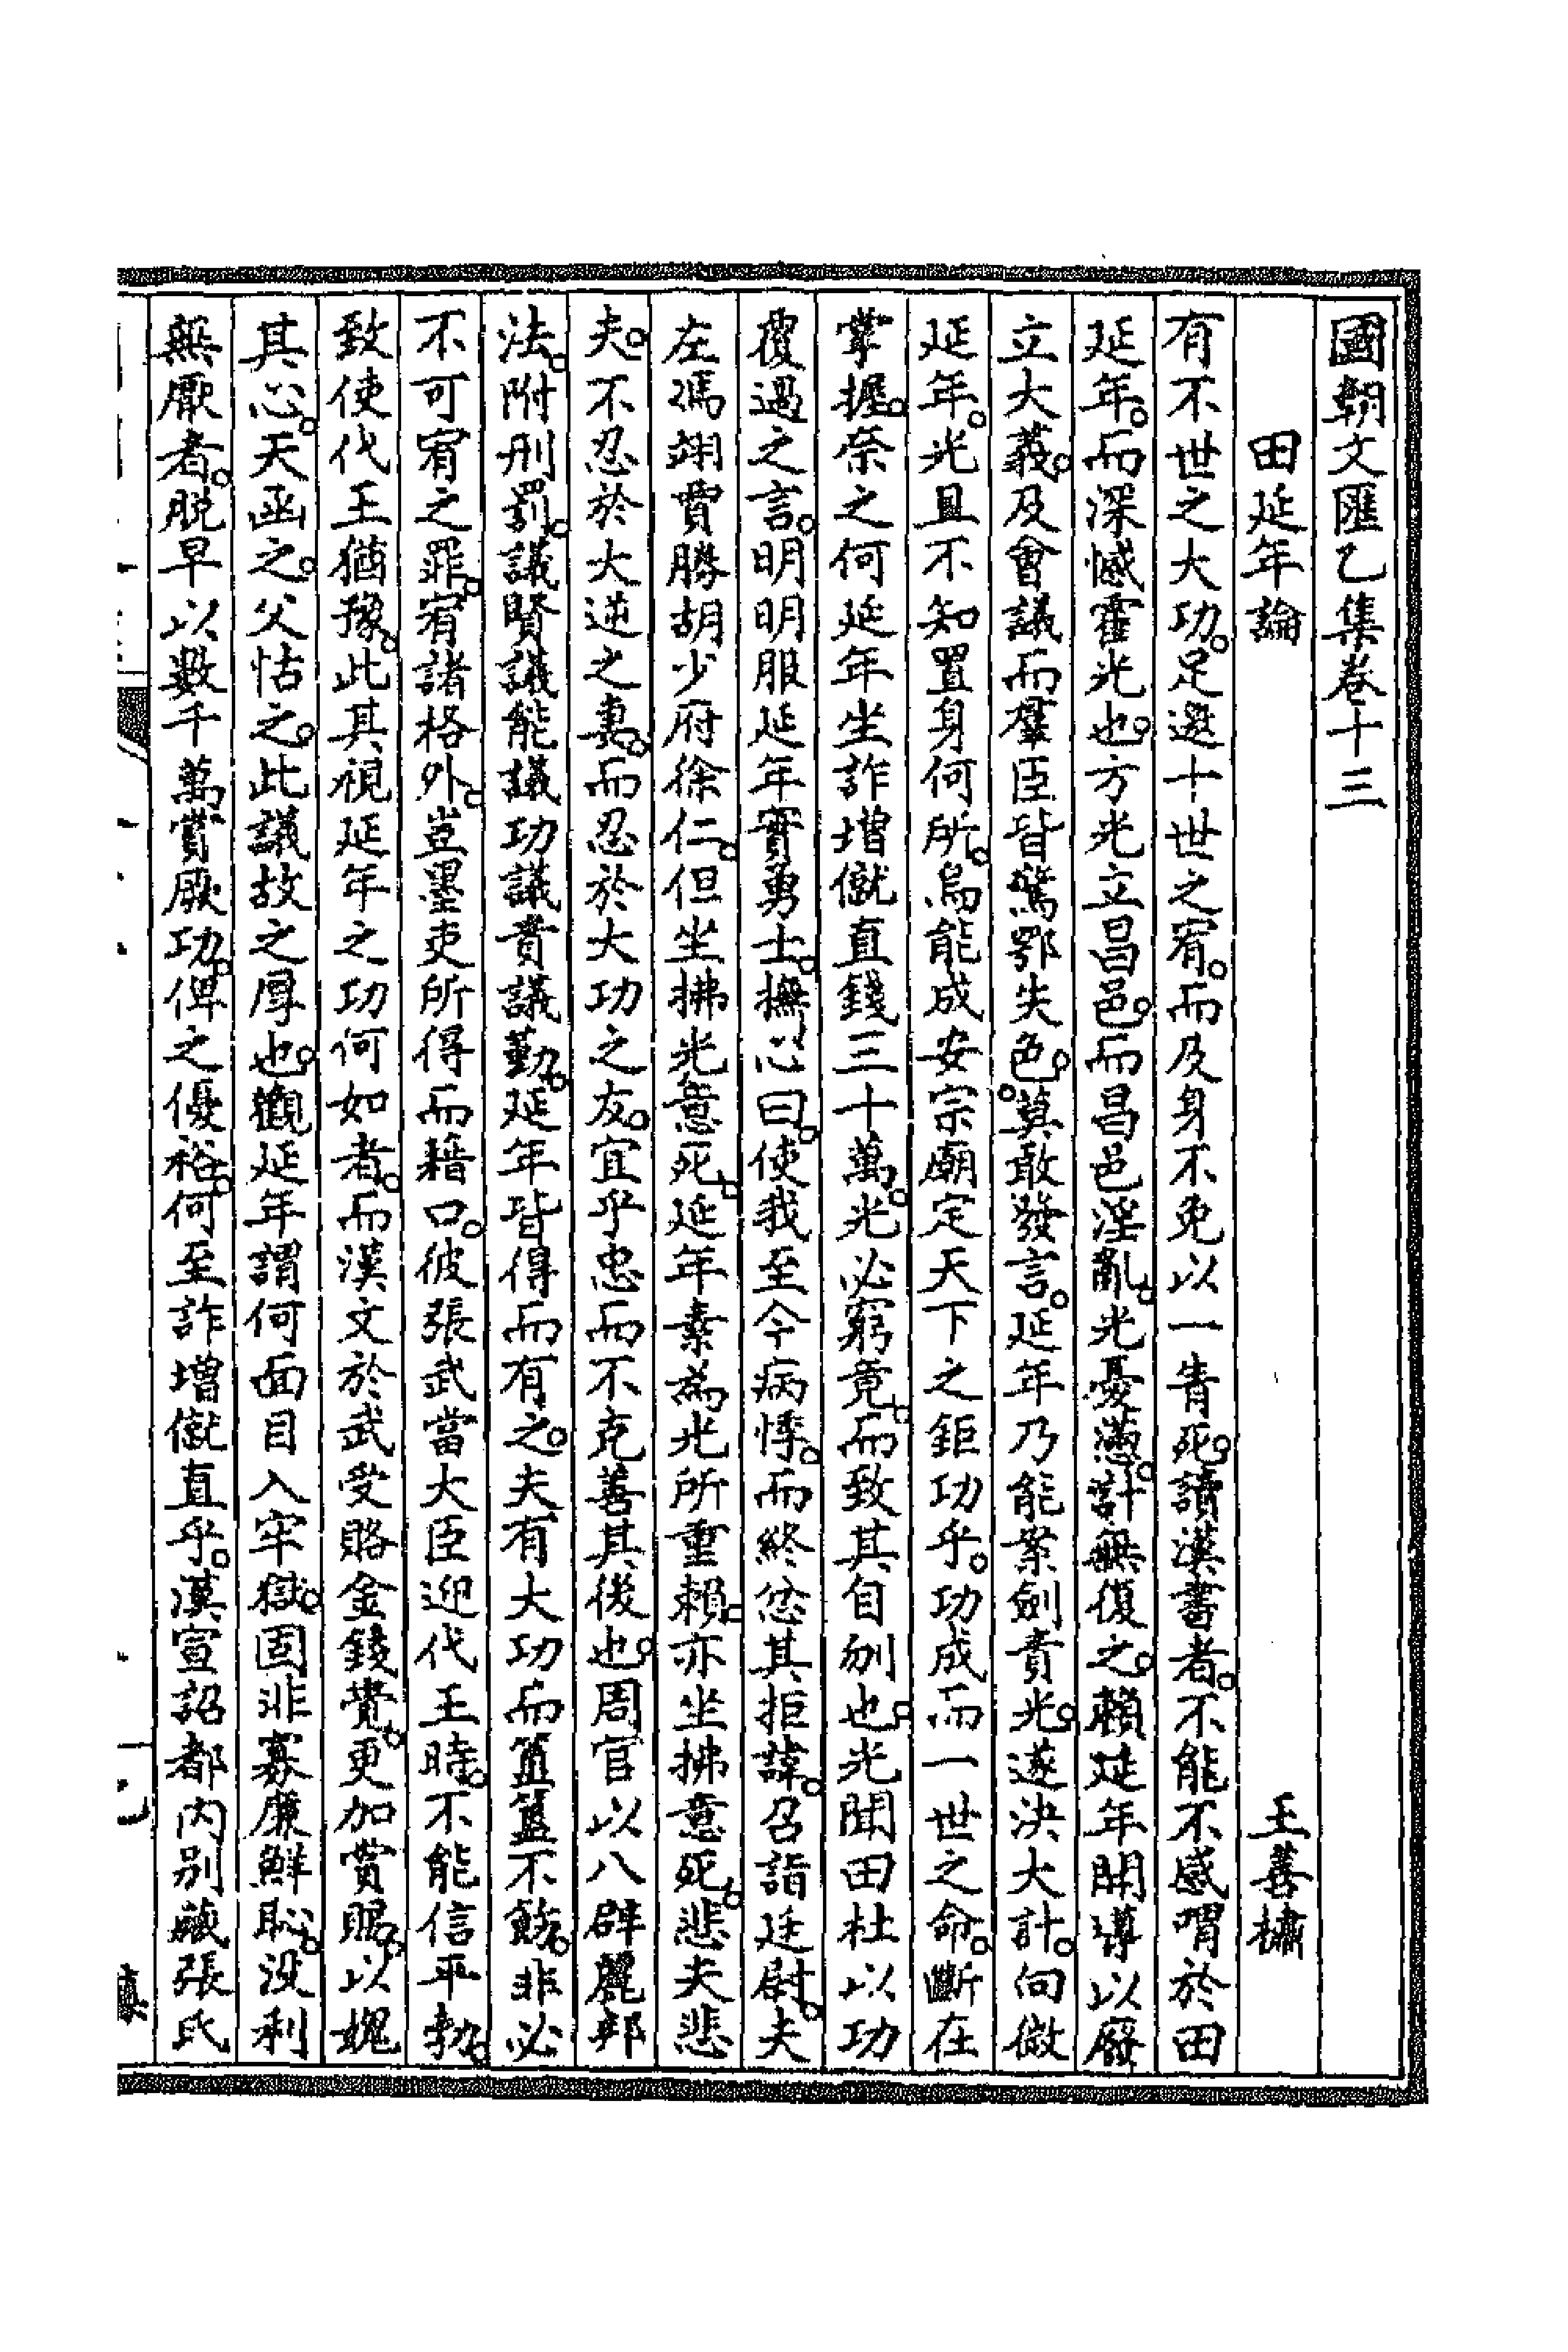 國朝文匯乙集卷十三
田延年論　王善橚
有不世之大功。足邀十世之宥。而及身不免以一眚死。讀漢書者。不能不感喟於田
延年。而深憾霍光也。方光立昌邑。而昌邑淫亂。光憂懣。計無復之。賴延年開導以廢
立大義。及會議而羣臣皆驚鄂失色。莫敢發言。延年乃能案劍責光。遂決大計。向微
延年。光且不知置身何所。烏能成安宗廟定天下之鉅功乎。功成而一世之命。斷在
掌握。奈之何延年坐詐增僦直錢三十萬。光必窮竟。而致其自刎也。光聞田杜以功
覆過之言。明明服延年實勇士。撫心曰。使我至今病悸。而終忿其拒諱。召詣廷尉。夫
左馮翊賈勝胡少府徐仁。但坐拂光意死。延年素為光所重賴。亦坐拂意死。悲夫悲
夫。不忍於大逆之妻。而忍於大功之友。宜乎忠而不克善其後也。周官以八辟麗邦
法。附刑罰。議賢議能議功議貴議勤。延年皆得而有之。夫有大功而簠簋不飭。非必
不可宥之罪。宥諸格外。豈墨吏所得而藉口。彼張武當大臣迎代王時。不能信平勃。
致使代王猶豫。此其視延年之功何如者。而漢文於武受賂金錢覺。更加賞賜。以媿
其心。天函之。父怙之。此議故之厚也。觀延年謂何面目入牢獄。固非寡廉鮮恥。沒利
無厭者。脱早以數千萬賞厥功。俾之優裕。何至詐增僦直乎。漢宣詔都內别藏張氏